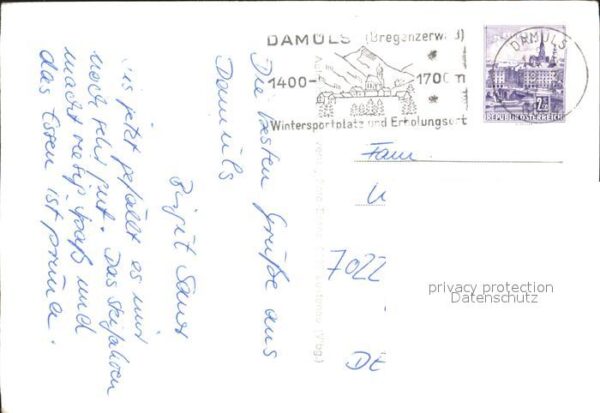 DAMÜLS (Bregenzerwald)
1400-1700m
Wintersportplatz und Erholungsort
DAMÜLS
2.50
REPUBLIK ÖSTERREICH
Die besten Grüße aus
Damüls
Birgit
Bis jetzt gefällt es mir
noch sehr gut. Das Skifahren
macht Spaß und
das Essen ist prima.
Fam.
7022
DE
privacy protection
Datenschutz